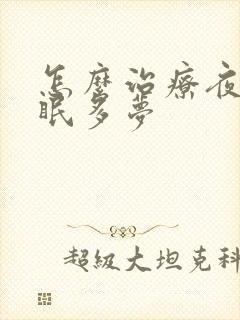 怎麼治療夜
眠多夢
超級大坦克科